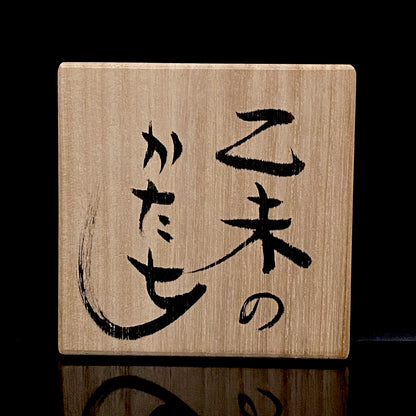 乙未の
かたち